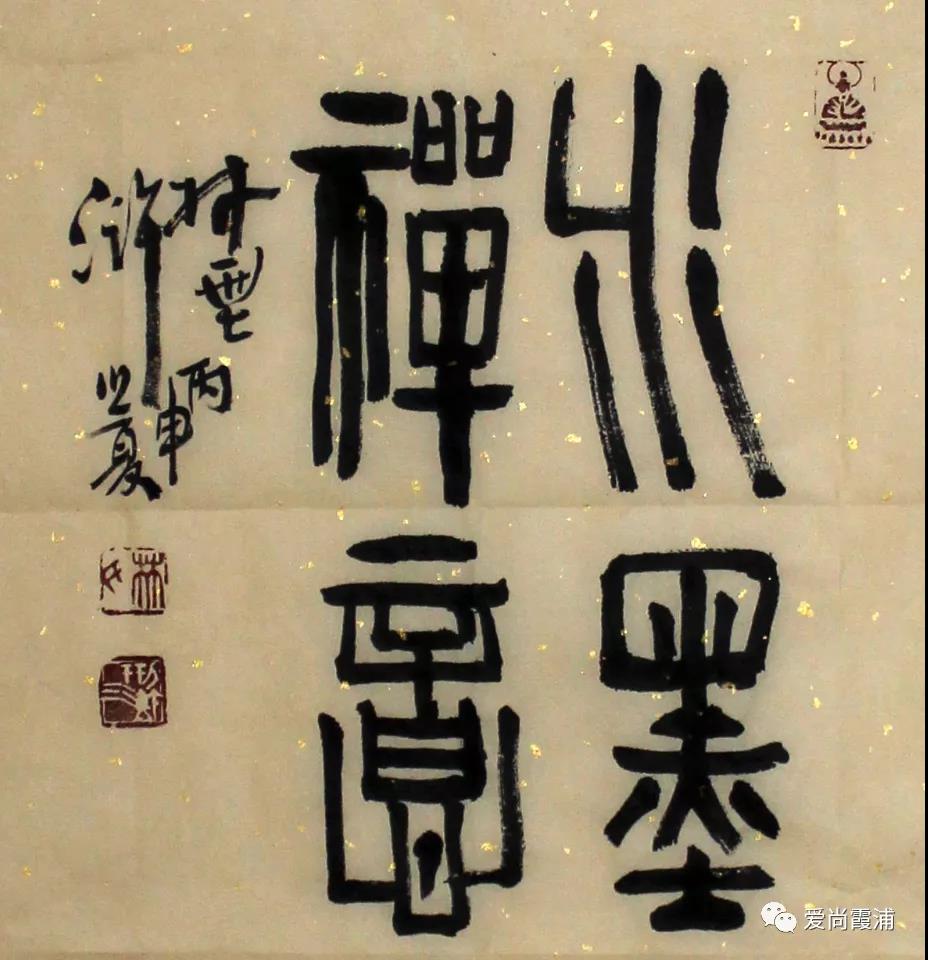 水墨
禪意
丙申
之夏
林氏
爱尚霞浦